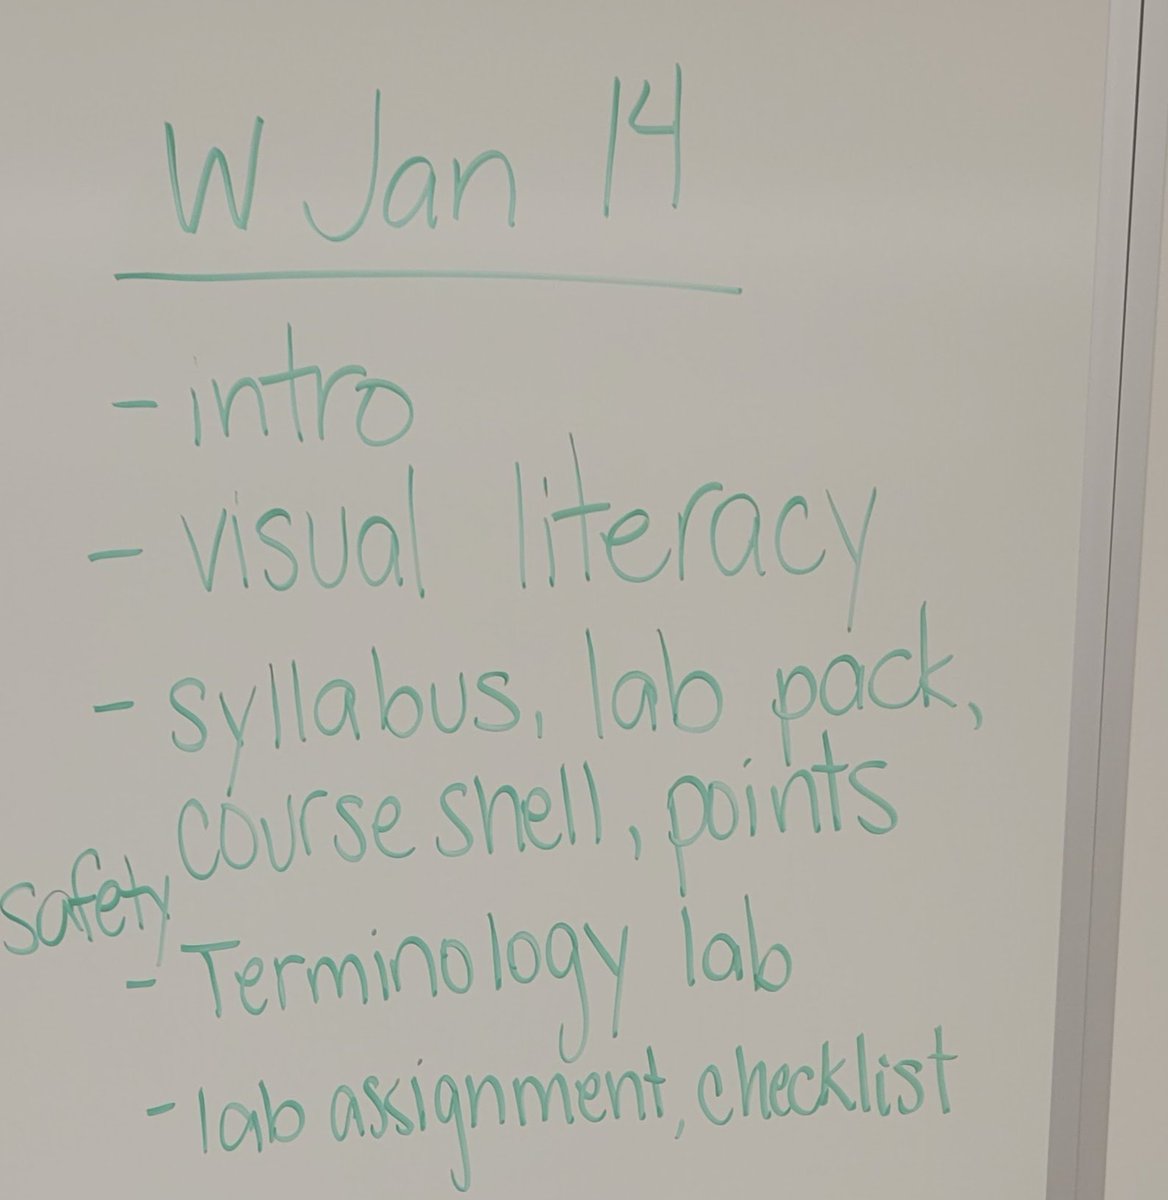 W Jan 14
- intro
- visual literacy
- syllabus, lab pack,
course shell, points
safety
- Terminology lab
- lab assignment, checklist